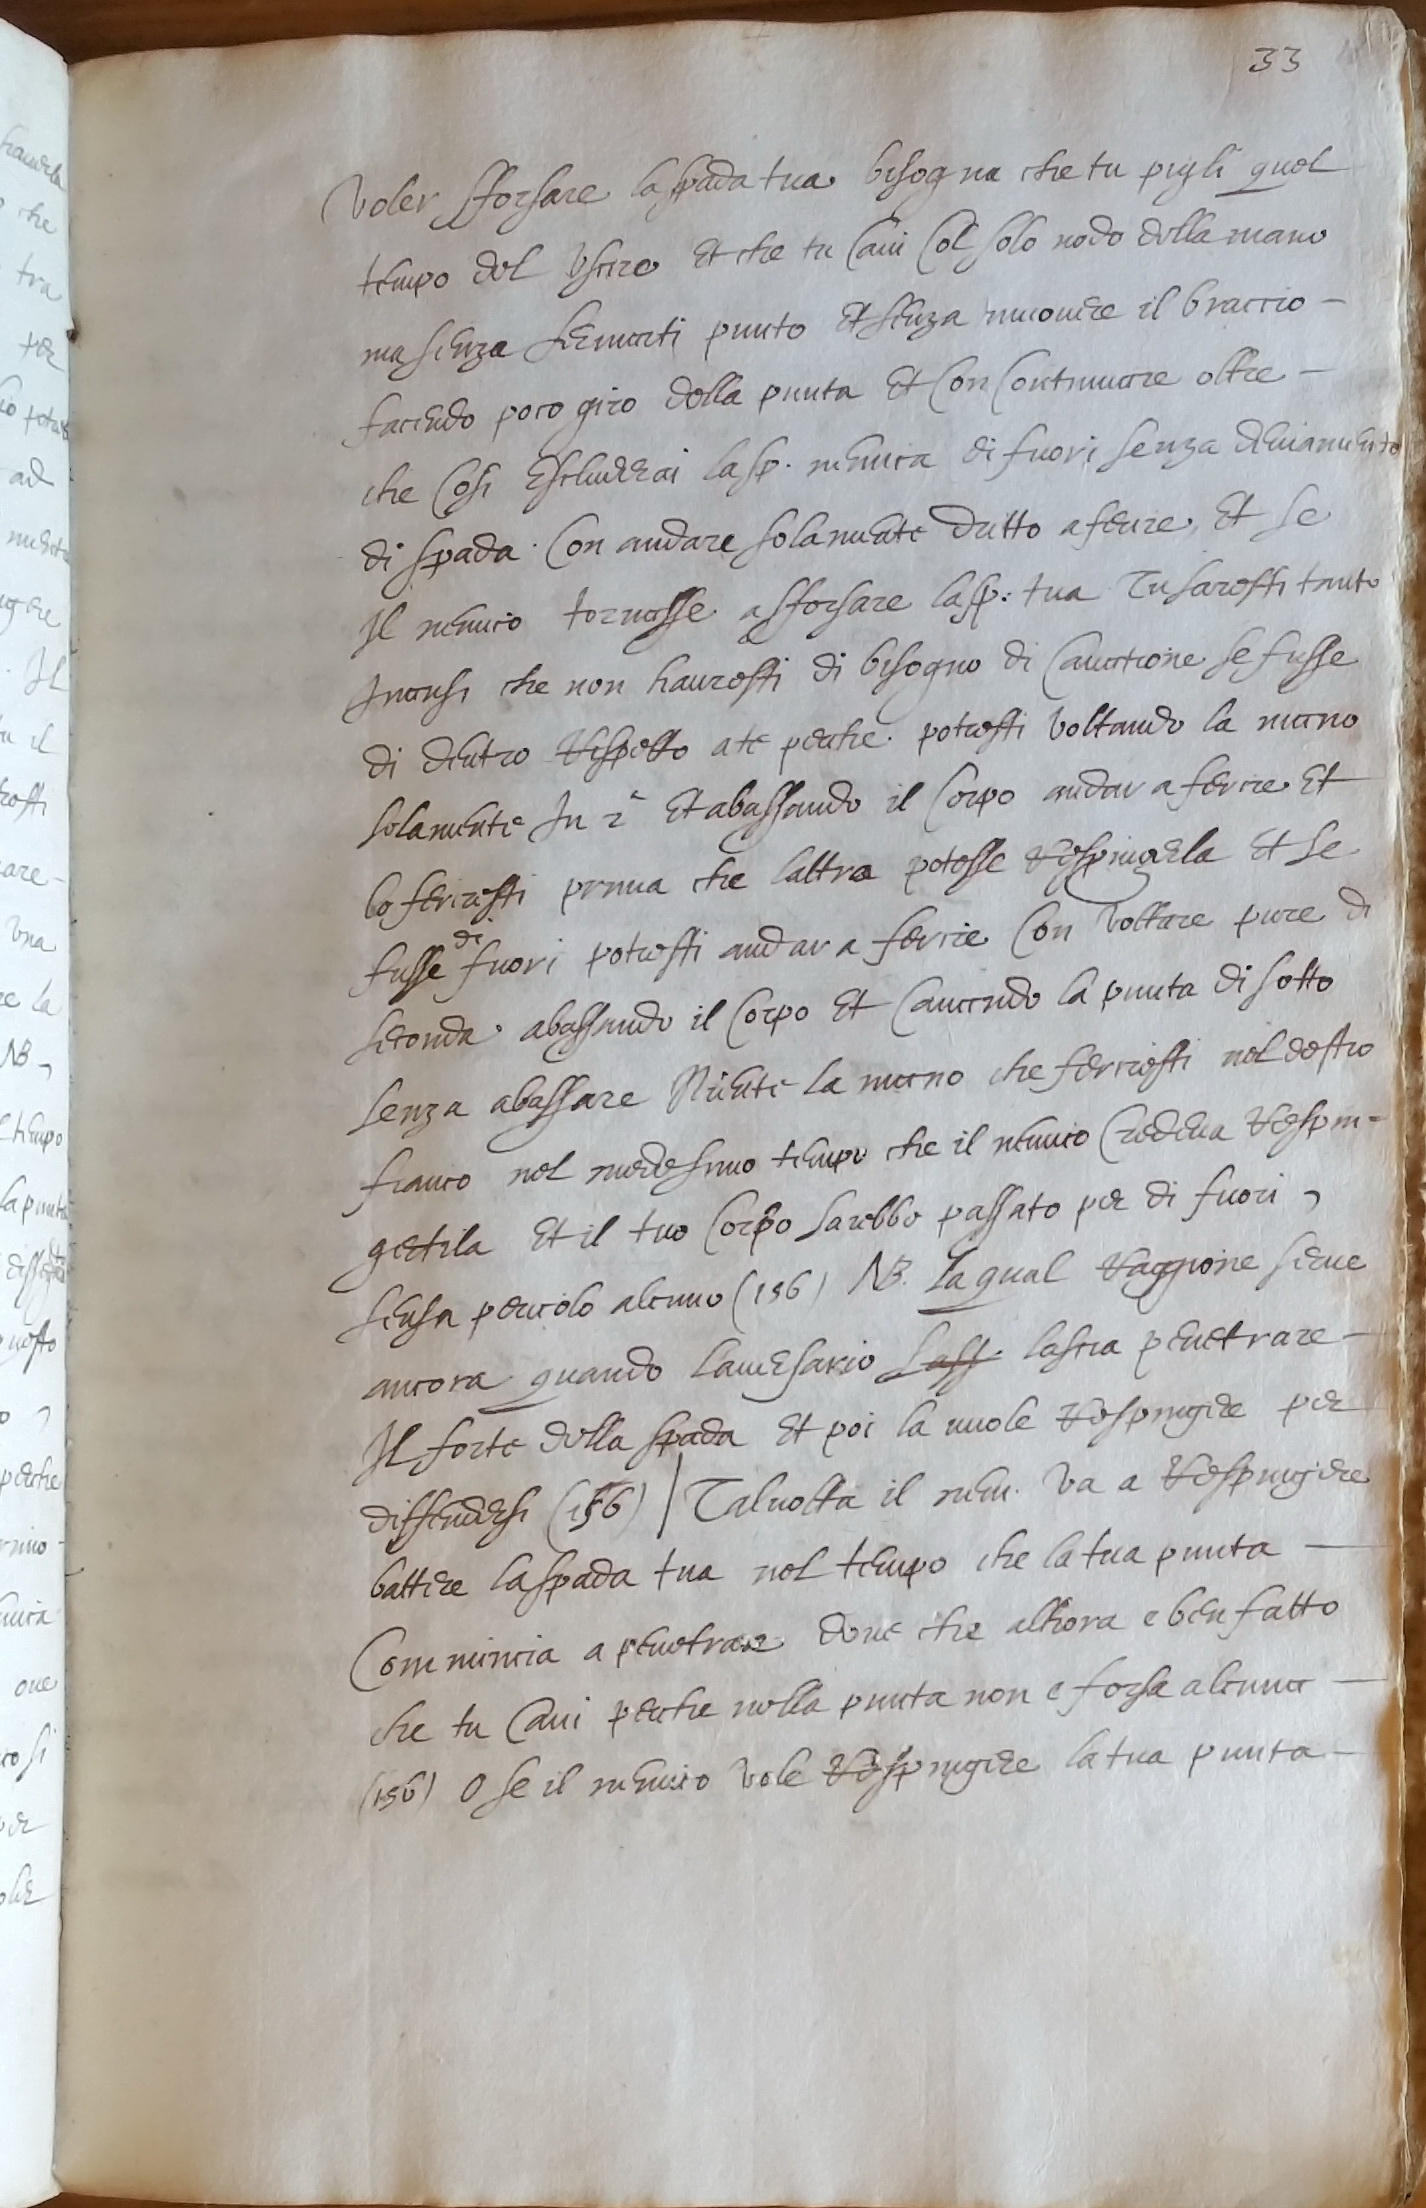 33
Voler sforsare la spada tua bisogna che tu pigli quel
tempo del uscire et che tu cavi col solo nodo della mano
ma senza fermarti punto et senza muovere il braccio -
facendo poco giro della punta et con continuare oltre -
che cosi escluderai la sp. nemica di fuori senza deviamento
di spada. con andare solamente dritto a ferire, et se
Il nemico tornasse a sforsare la sp: tua Tu saresti tanto
Inansi che non hauresti di bisogno di cauatione se fusse
di dentro rispetto a te perche. potresti voltando la mano
solamente In 2ª et abassando il corpo andar a ferire et
lo feriresti prima che laltra potesse respingerla et se
fusse di fuori potresti andar a ferire con voltare pure di
seconda. abassando il corpo et cauando la punta di sotto
senza abassare niente la mano che feriresti nel destro
fianco nel medesimo tempo che il nemico credeua respin=
gertila et il tuo corpo sarebbe passato per di fuori,
sensa pericolo alcuno (156) NB. la qual raggione serue
ancora quando lauersario lass. lascia penetrare -
Il forte della spada et poi la uuole respingere per
diffendersi (156) / Taluolta il nem. va a respingere
battere la spada tua nel tempo che la tua punta -
Commincia a penetrare doue che alhora e ben fatto
che tu caui perche nella punta non e forsa alcuna -
(156) O se il nemico vole respingere la tua punta -